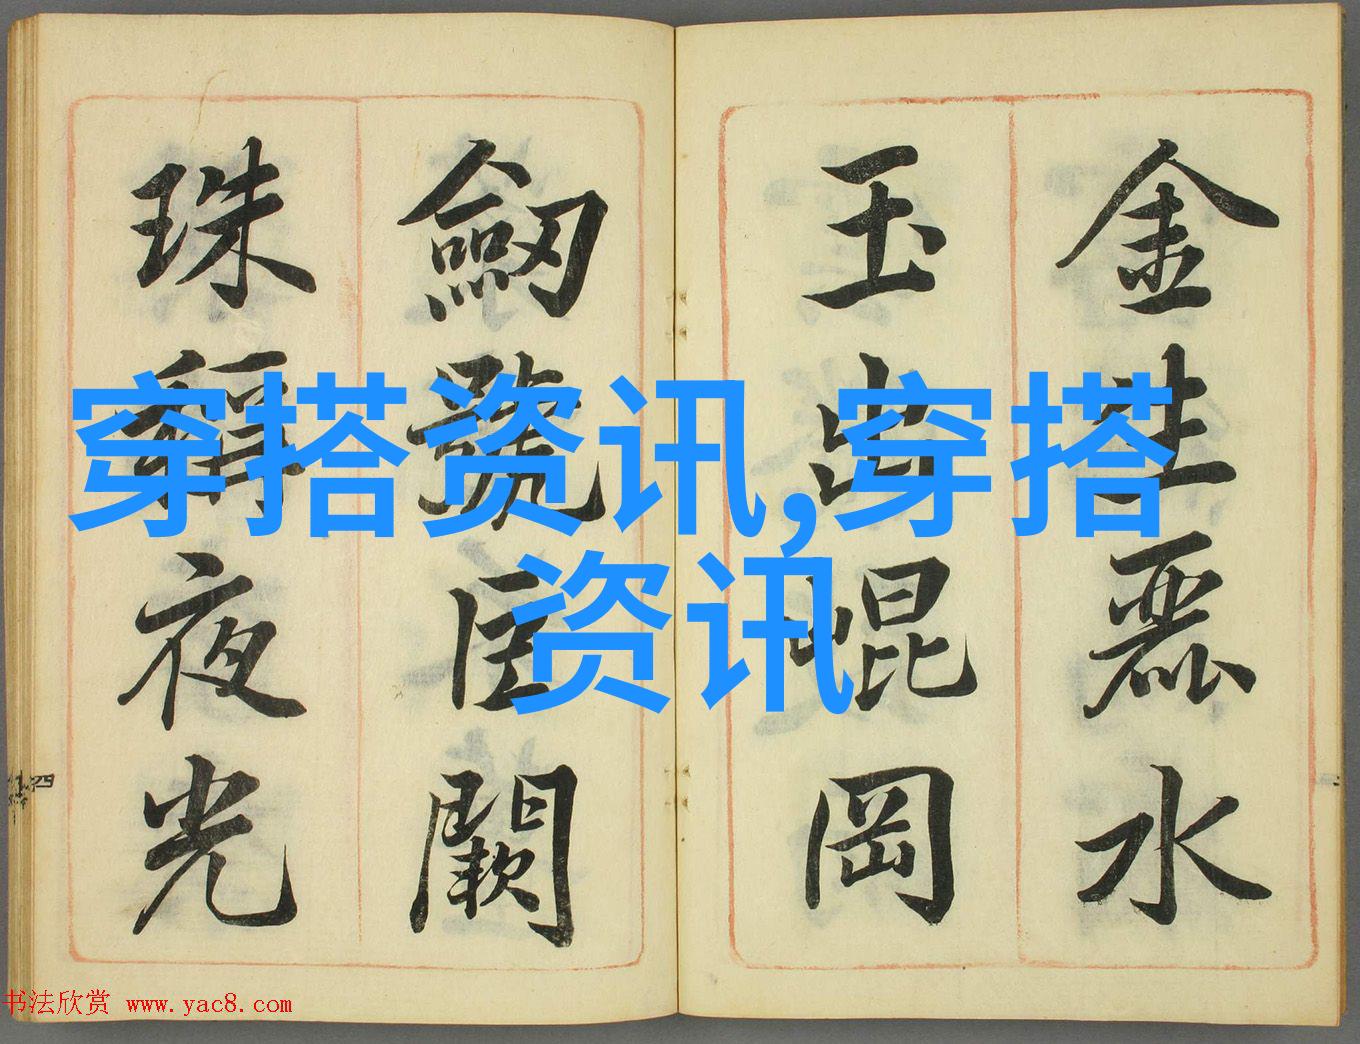 金生麗水
玉出崐岡
劒號巨闕
珠稱夜光
穿搭资讯,穿搭
资讯
四
书法欣赏 www.yac8.com